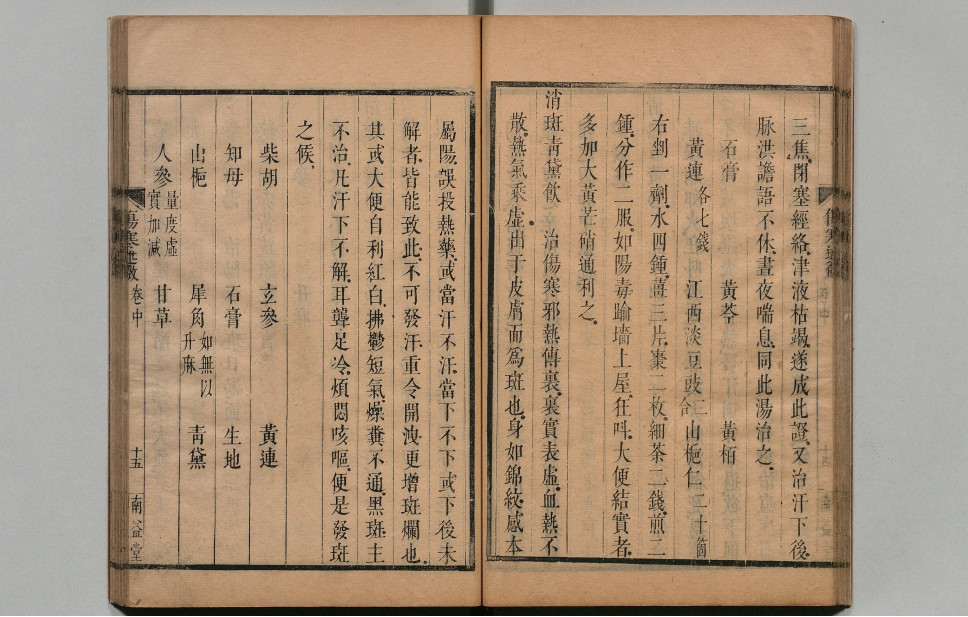 三焦閉塞經絡津液枯竭遂成此證又治汗下後
脉洪譫語不休晝夜喘息同此湯治之
石膏 黃芩 黃栢
黃連各七錢 江西淡豆豉二合 山梔仁二十箇
右剉一劑水四鍾薑三片棗二枚細茶二錢煎二
鍾分作二服如陽毒踰墻上屋狂呌大便結實者
多加大黃芒硝通利之
消斑青黛飲 治傷寒邪熱傳裏裏實表虛血熱不
散熱氣乘虛出于皮膚而爲斑也身如錦紋感本
屬陽誤投熱藥或當汗不汗當下不下或下後未
解者皆能致此不可發汗重令開洩更增斑爛也
其或大便自利紅白拂鬱短氣燥糞不通黑斑主
不治凡汗下不解耳聾足冷煩悶咳嘔便是發斑
之候
柴胡 玄參 黃連
知母 石膏 生地
山梔 犀角如無以升麻 青黛
人參量度虛實加減 甘草
傷寒 卷中 十五 南益堂